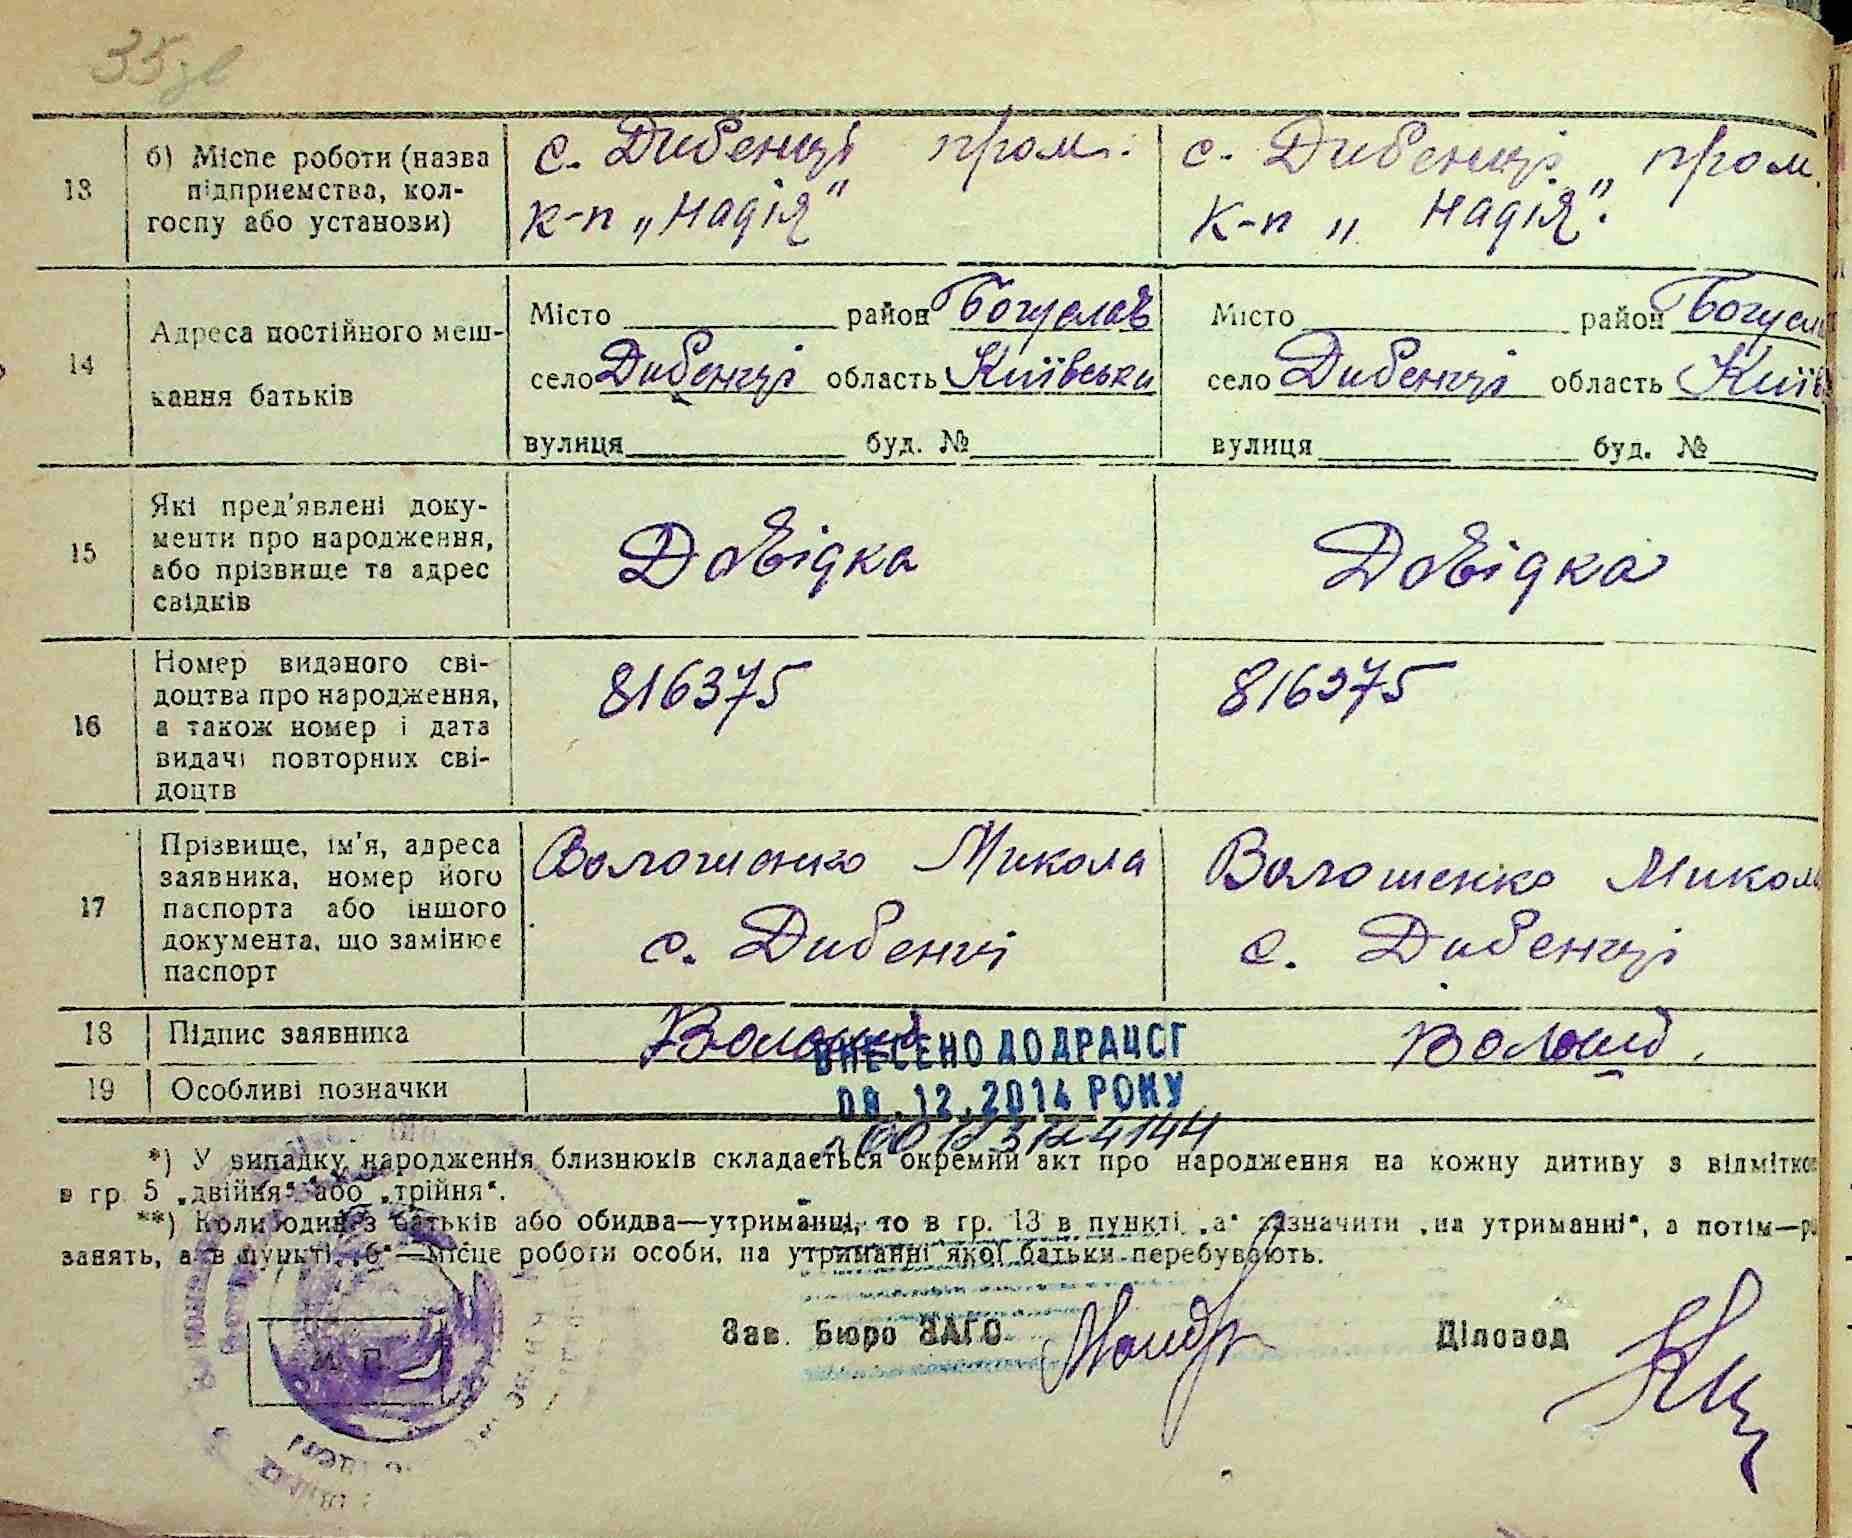 35зв
13 б) Місце роботи (назва підприємства, колгоспу або установи)
с. Дибенці пром. к-п „Надія"
с. Дибенці пром. к-п „Надія".
14 Адреса постійного мешкання батьків
Місто район Богуслав
село Дибенці область Київська
вулиця буд. №
Місто район Богусл
село Дибенці область Київ
вулиця буд. №
15 Які пред'явлені документи про народження, або прізвище та адрес свідків
Довідка
Довідка
16 Номер виданого свідоцтва про народження, а також номер і дата видачі повторних свідоцтв
816375
816375
17 Прізвище, ім'я, адреса заявника, номер його паспорта або іншого документа, що замінює паспорт
Волошенко Микола
с. Дибенці
Волошенко Микола
с. Дибенці
18 Підпис заявника
19 Особливі позначки
ВНЕСЕНО ДО ДРАЦСГ
09.12.2014 РОКУ
*) У випадку народження близнюків складається окремий акт про народження на кожну дитину з відмітко
в гр. 5 „двійня" або „трійня".
**) Коли один з батьків або обидва—утриманці, то в гр. 13 в пункті „а" зазначити „на утриманні", а потім—р
занять, а в пункті „б"—місце роботи особи, на утриманні якої батьки перебувають.
М. П.
Зав. Бюро ЗАГС Діловод